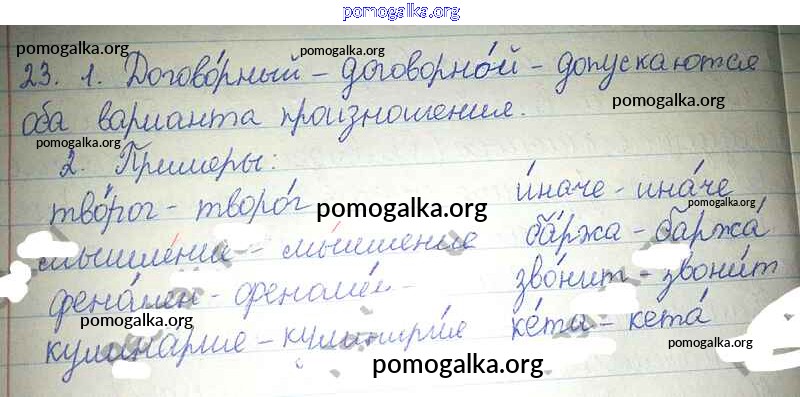 pomogalka.org
pomogalka.org
pomogalka.org
23. 1. Догово́рный - договорно́й - допускаются
pomogalka.org
оба варианта произношения.
pomogalka.org
2. Примеры:
тво́рог - творо́г
и́наче - ина́че
pomogalka.org
pomogalka.org
мышле́ние - мы́шление
ба́ржа - баржа́
фено́мен - феноме́н
зво́нит - звони́т
pomogalka.org
кулина́рия - кулинари́я
ке́та - кета́
pomogalka.org
pomogalka.org